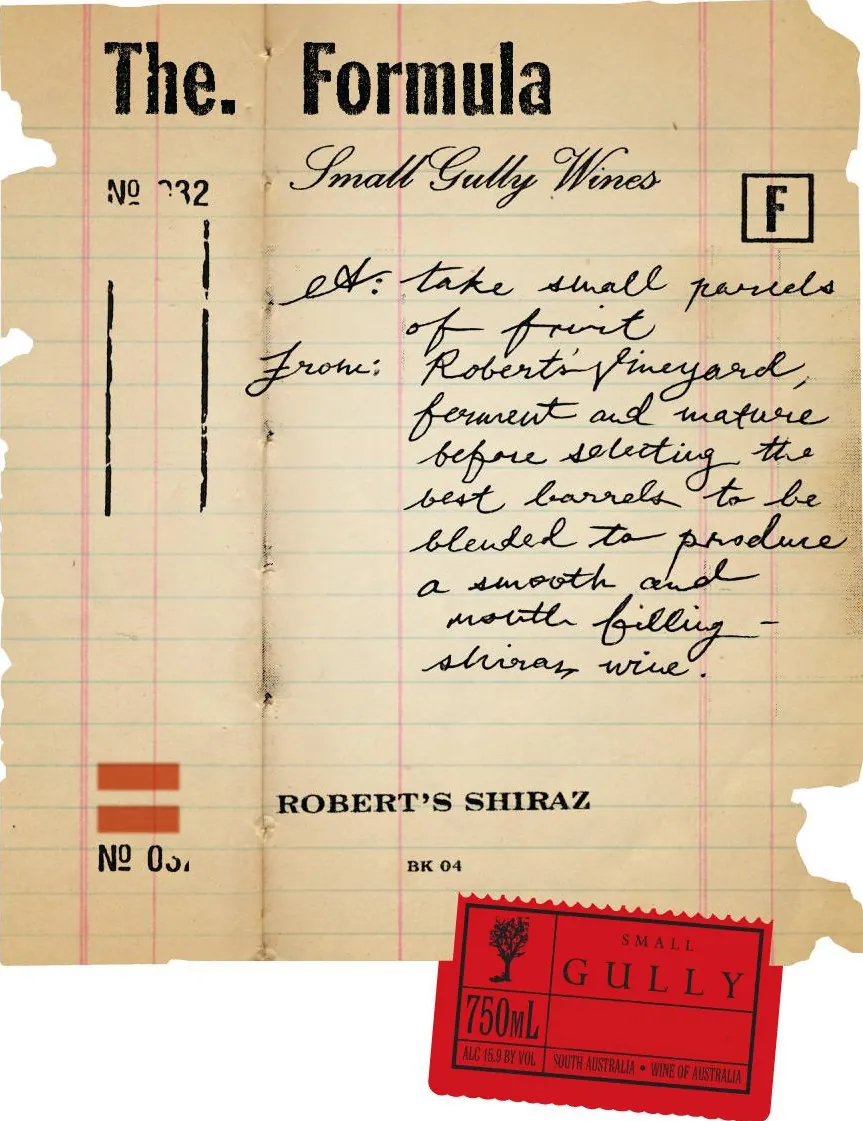 The. Formula
Small Gully Wines
Nº 032
F
take small parcels
of fruit
From: Robert's Vineyard,
ferment and mature
before selecting the
best barrels to be
blended to produce
a smooth and
mouth filling –
shiraz wine.
ROBERT'S SHIRAZ
Nº
BK 04
SMALL
GULLY
750ML
ALC 15.9 BY VOL
SOUTH AUSTRALIA • WINE OF AUSTRALIA